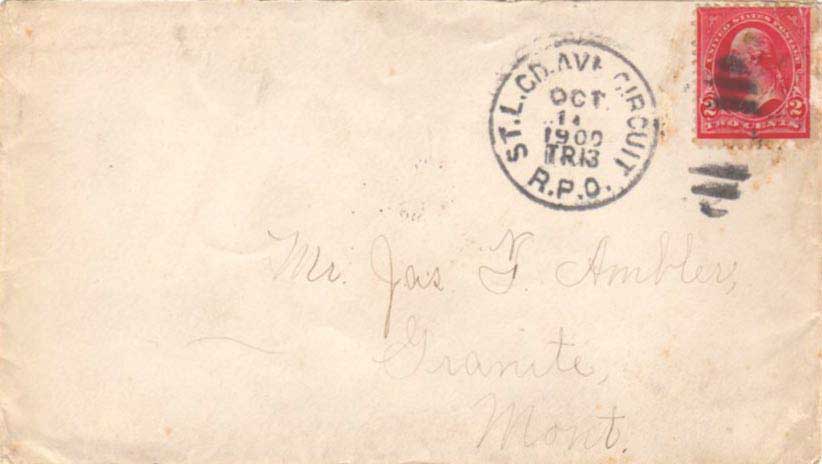 ST. L. CD. AVE CIRCUIT
OCT
11
1900
TR13
R.P.O.
UNITED STATES POSTAGE
2 2
TWO CENTS
Mr. Jas. F. Ambler,
Granite,
Mont.